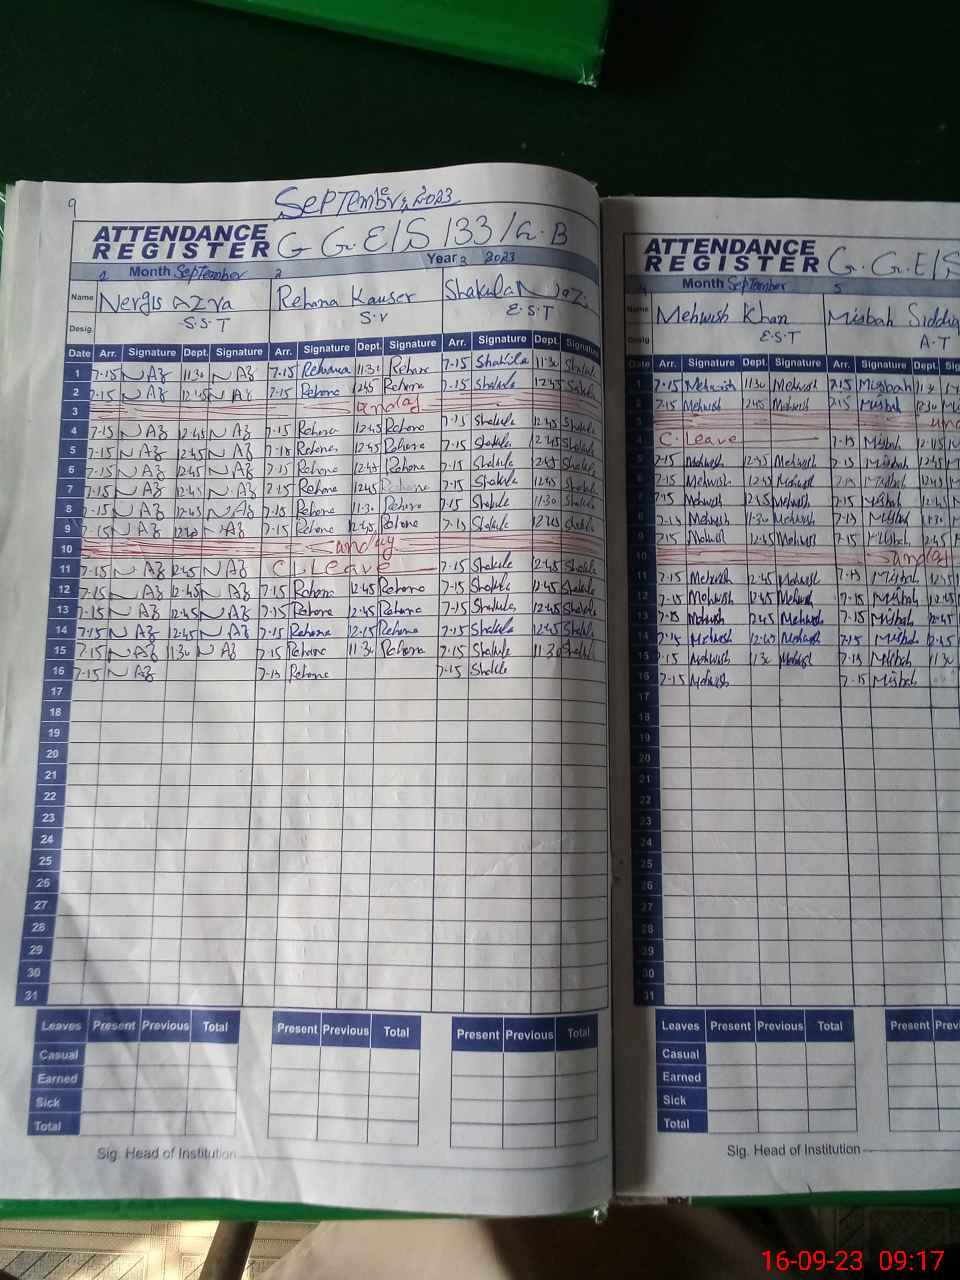 9
September, 2023
ATTENDANCE REGISTER G G.E/S 133/G.B
2 Month September 2 Year 3 2023
Name Nergis AZra Rehana Kauser Shakula Naz
Desig. S.S.T S.V E.S.T
Date Arr. Signature Dept. Signature Arr. Signature Dept. Signature Arr. Signature Dept. Signature
1 7-15 N AZ 11:30 N AZ 7-15 Rehana 11:31 Rehane 7-15 Shakila 11:30 Shakule
2 7-15 N AZ 12:45 N AZ 7-15 Rehone 12:45 Rehone 7-15 Shakule 12:45 Shakule
3
4 7-15 N AZ 12:45 N AZ 7-15 Rehona 12:45 Rehone 7-15 Shakule 12:45 Shakule
5 7-15 N AZ 12:45 N AZ Rehone 12:45 Rehone 7-15 Shakule 12:45 Shakule
6 7-15 N AZ 12:45 N AZ 7-15 Rehone 12:45 Rehone 7-15 Shakule 12:45 Shakule
7 7-15 N AZ 12:45 N AZ 7-15 Rehone 12:45 Rehone 7-15 Shakule 12:45 Shakule
8 7-15 N AZ N AZ 7-15 Rehone 11:30 Rehone 7-15 Shakule 11:30 Shakule
9 7-15 N AZ N AZ 7-15 Rehone 12:45 Rehone 7-15 Shakule 12:45 Shakule
10
11 7-15 N AZ 12:45 N AZ C. Leave 7-15 Shakule 12:45 Shakule
12 7-15 N AZ 12:45 N AZ 7-15 Rehone 12:45 Rehone 7-15 Shakule 12:45 Shakule
13 7-15 N AZ 12:45 N AZ 7-15 Rehone 12:45 Rehone 7-15 Shakule 12:45 Shakule
14 7-15 N AZ 12:45 N AZ 7-15 Rehone 12:15 Rehone 7-15 Shakule 12:45 Shakule
15 7-15 N AZ 11:30 N AZ 7-15 Rehane 11:30 Rehone 7-15 Shakule 11:30 Shakule
16 7-15 N AZ 7-15 Rehone 7-15 Shakule
17
18
19
20
21
22
23
24
25
26
27
28
29
30
31
Leaves Present Previous Total Present Previous Total Present Previous Total
Casual
Earned
Sick
Total
Sig. Head of Institution
ATTENDANCE REGISTER G.G.E/S
Month September 5
Mehwish Khan Misbah
Desig. E.S.T A.T
Date Arr. Signature Dept. Signature Arr. Signature Dept.
1 7-15 Mehwish 11:30 Mehwish 7:15 Misbah
2 7-15 Mehwish 12:45 Mehwish 7:15 Misbah 12:30
3
4 C. Leave 7-15 Misbah 12:45
5 7-15 Mehwish 12:45 Mehwish 7-15 Misbah 12:45
6 7-15 Mehwish 12:45 Mehwish 7-15 Misbah 12:45
7 7-15 Mehwish 12:45 Mehwish 7-15 Misbah 12:45
8 7-15 Mehwish 11:30 Mehwish 7-15 Misbah 11:30
9 7-15 Mehwish 12:45 Mehwish 7-15 Misbah 12:45
10
11 7-15 Mehwish 12:45 Mehwish 7-15 Misbah 12:15
12 7-15 Mehwish 12:45 Mehwish 7-15 Misbah 12:45
13 7-15 Mehwish 12:45 Mehwish 7-15 Misbah 12:45
14 7-15 Mehwish Mehwish 7-15 Misbah 12:45
15 7-15 Mehwish 11:30 Mehwish 7-15 Misbah 11:30
16 7-15 Mehwish 7-15 Misbah
17
18
19
20
21
22
23
24
25
26
27
28
29
30
31
Leaves Present Previous Total Present
Casual
Earned
Sick
Total
Sig. Head of Institution
16-09-23 09:17